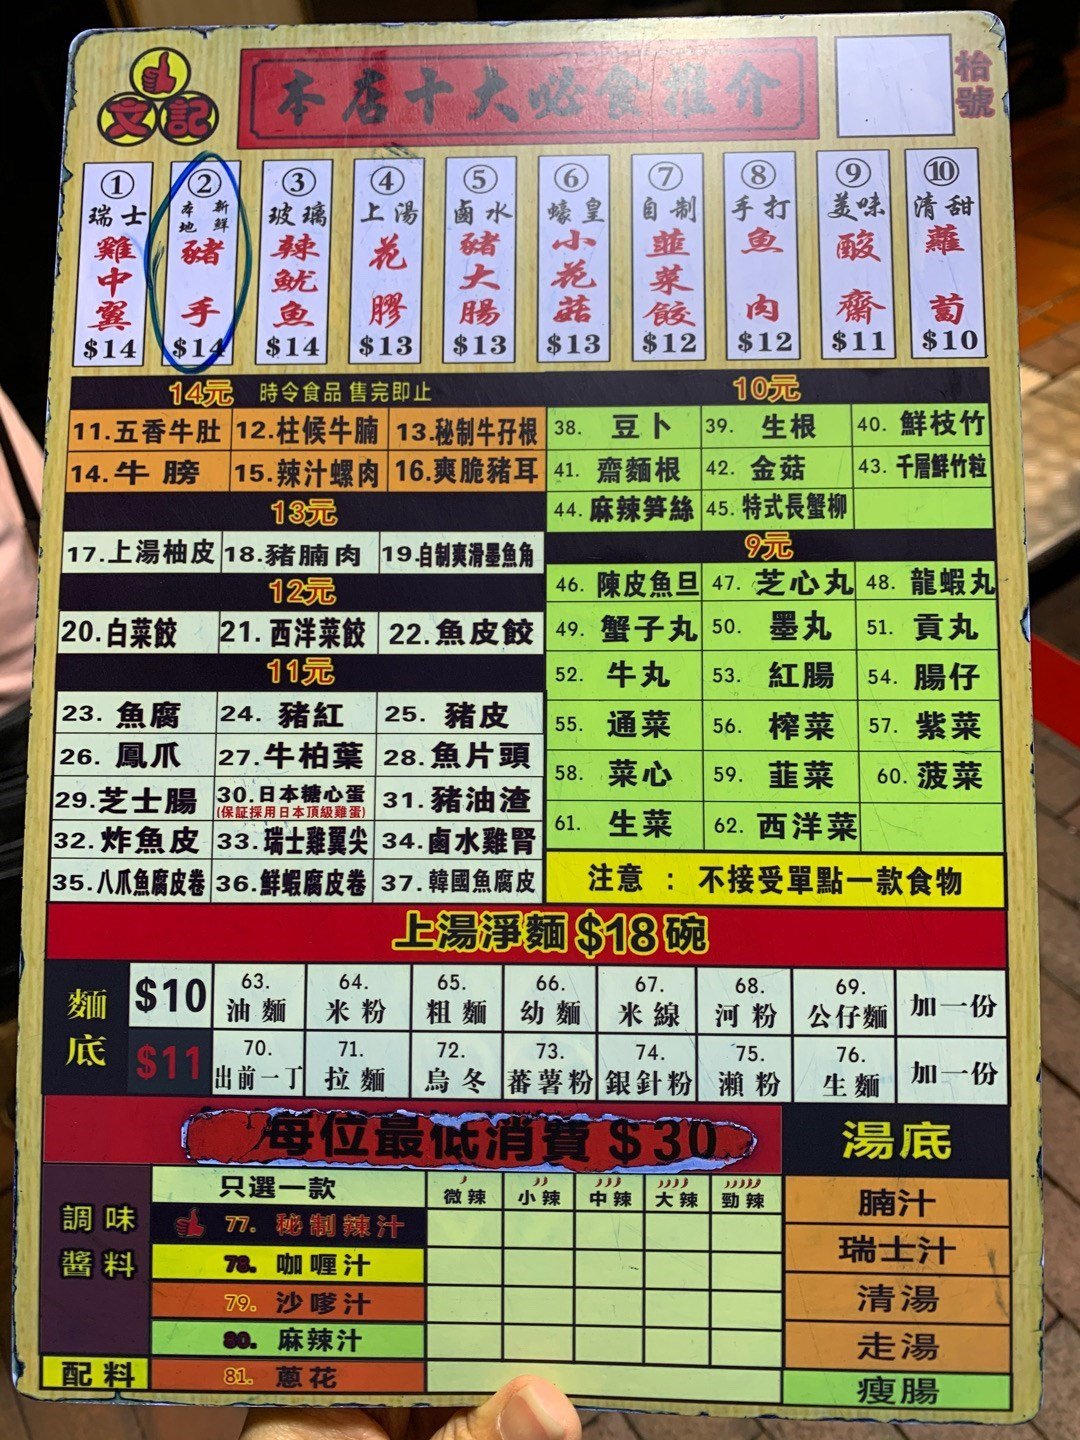 文記
本店十大必食推介
枱號
① 瑞士 雞中翼 $14
② 本地 新鮮 豬手 $14
③ 玻璃 辣魷魚 $14
④ 上湯 花膠 $13
⑤ 鹵水 豬大腸 $13
⑥ 蠔皇 小花菇 $13
⑦ 自制 韮菜餃 $12
⑧ 手打 魚肉 $12
⑨ 美味 酸齋 $11
⑩ 清甜 蘿蔔 $10
14元 時令食品 售完即止
11.五香牛肚 12.柱候牛腩 13.秘制牛孖根
14.牛膀 15.辣汁螺肉 16.爽脆豬耳
13元
17.上湯柚皮 18.豬腩肉 19.自制爽滑墨魚角
12元
20.白菜餃 21.西洋菜餃 22.魚皮餃
11元
23.魚腐 24.豬紅 25.豬皮
26.鳳爪 27.牛柏葉 28.魚片頭
29.芝士腸 30.日本糖心蛋 31.豬油渣
(保証採用日本頂級雞蛋)
32.炸魚皮 33.瑞士雞翼尖 34.鹵水雞腎
35.八爪魚腐皮卷 36.鮮蝦腐皮卷 37.韓國魚腐皮
10元
38.豆卜 39.生根 40.鮮枝竹
41.齋麵根 42.金菇 43.千層鮮竹粒
44.麻辣笋絲 45.特式長蟹柳
9元
46.陳皮魚旦 47.芝心丸 48.龍蝦丸
49.蟹子丸 50.墨丸 51.貢丸
52.牛丸 53.紅腸 54.腸仔
55.通菜 56.榨菜 57.紫菜
58.菜心 59.韮菜 60.菠菜
61.生菜 62.西洋菜
注意：不接受單點一款食物
上湯淨麵$18碗
麵底
$10 63.油麵 64.米粉 65.粗麵 66.幼麵 67.米線 68.河粉 69.公仔麵 加一份
$11 70.出前一丁 71.拉麵 72.烏冬 73.蕃薯粉 74.銀針粉 75.瀨粉 76.生麵 加一份
每位最低消費$30
調味醬料
只選一款 微辣 小辣 中辣 大辣 勁辣
77.秘制辣汁
78.咖喱汁
79.沙嗲汁
80.麻辣汁
配料 81.蔥花
湯底
腩汁
瑞士汁
清湯
走湯
瘦腸